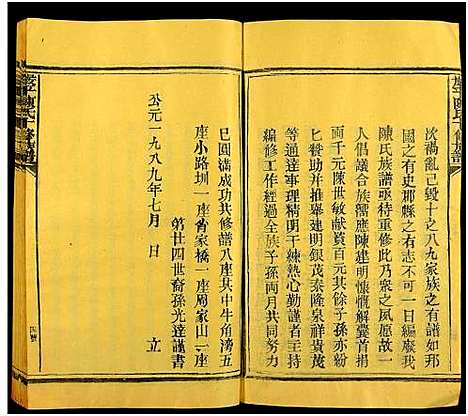 沈禍亂已毀十之八九家族之有譜如邦
國之有史郡縣之有志不可一日編廢我
陳氏族譜亟待重修此乃衆之夙愿故一
人倡議合族濡應陳建明慷慨解囊首捐
兩千元陳世敏献資百元其餘子孫亦紛
匕贊助并推舉建明銀茂泰隆泉祥貴茂
等通達事理精明干練熱心勤謹者主持
工作經過全族子孫兩月共同努力
巳圓滿成功共修譜八座其中牛角澇五
座小路圳一座肯家橋一座周家山一座
第廿四世裔孫光達謹書
公元一九八九年七月 日 立
陳氏 修族譜